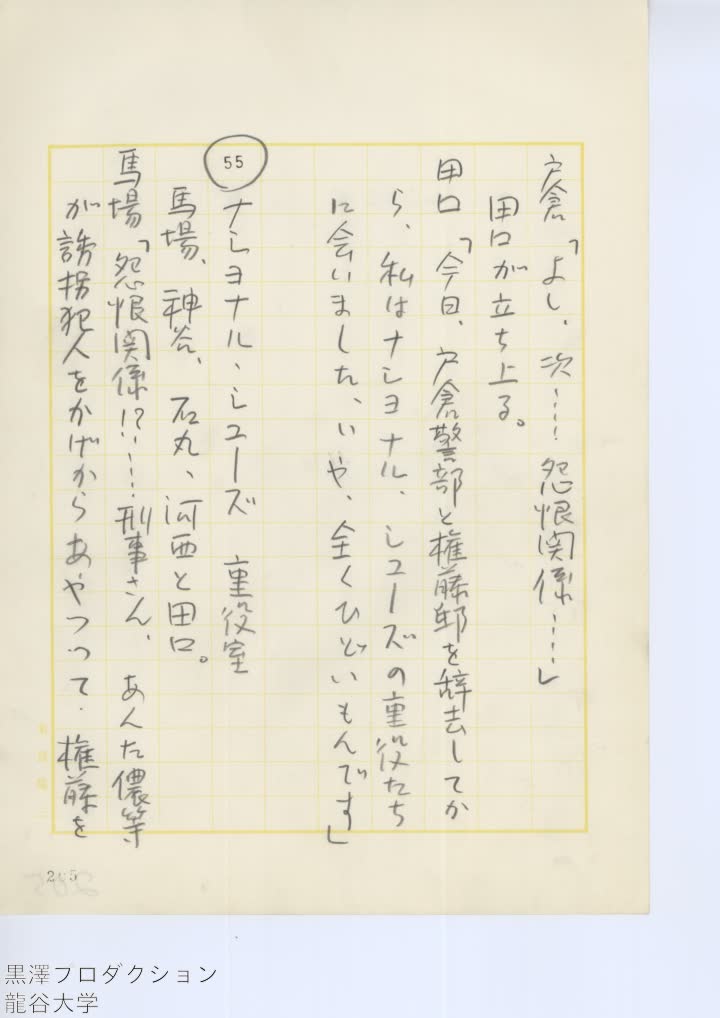 戸倉「よし、次……怨恨関係……」
田口が立ち上る。
田口「今日、戸倉警部と権藤邸を辞去してか
ら、私はナショナル、シューズの重役たち
に会いました、いや、全くひどいもんです」
55
ナショナル、シューズ 重役室
馬場、神谷、石丸、河西と田口。
馬場「怨恨関係!?……刑事さん、あんた儂等
が誘拐犯人をかげからあやつって、権藤を
205
黒澤プロダクション
龍谷大学